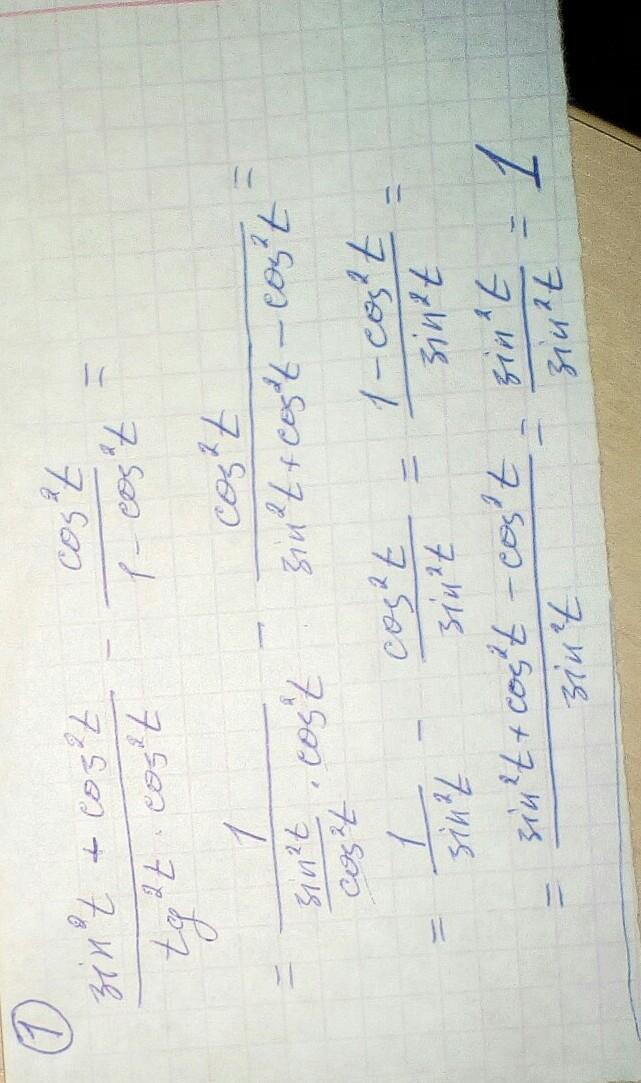 ①
(sin²t + cos²t)/(tg²t · cos²t) - cos²t/(1 - cos²t) =
= 1/(sin²t/cos²t · cos²t) - cos²t/(sin²t + cos²t - cos²t) =
= 1/sin²t - cos²t/sin²t = (1 - cos²t)/sin²t =
= (sin²t + cos²t - cos²t)/sin²t = sin²t/sin²t = 1